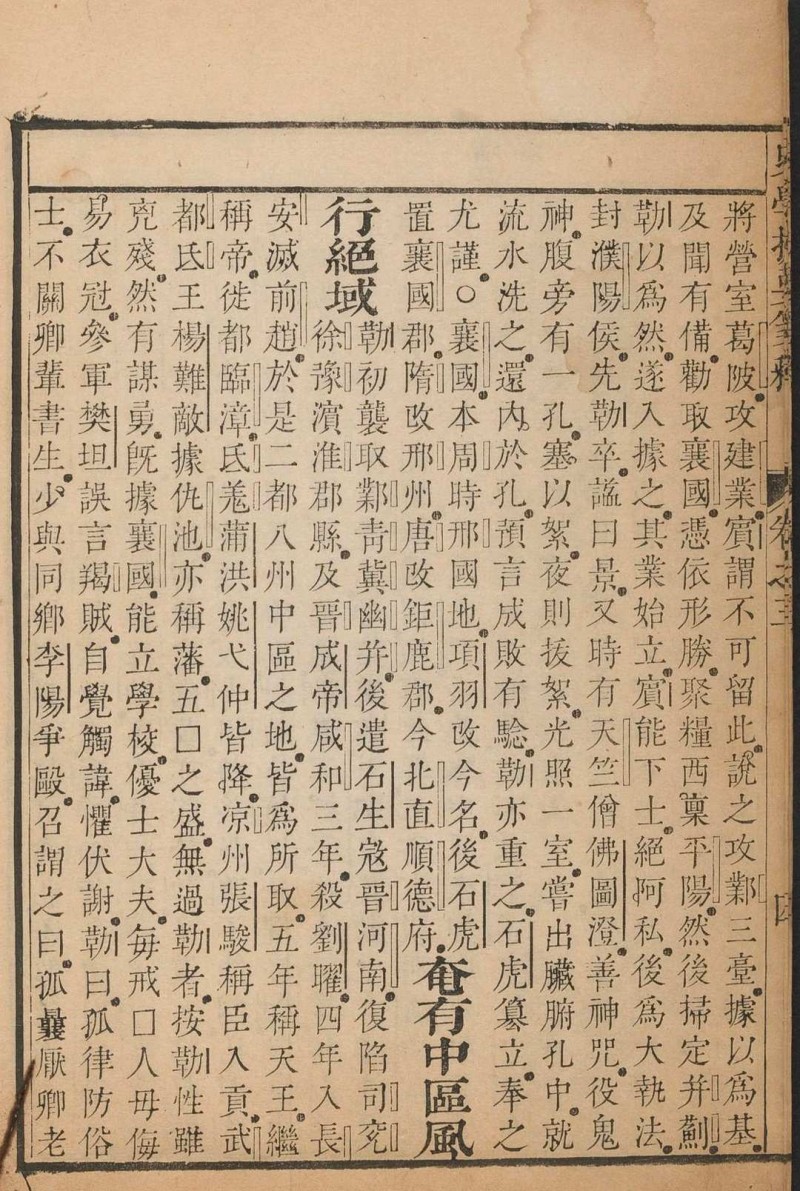 將營室葛陂攻建業賓謂不可留此說之攻鄴三臺據以爲基
及聞有備勸取襄國憑依形勝聚糧西稟平陽然後掃定并薊
勒以爲然遂入據之其業始立賓能下士絕阿私後爲大執法
封濮陽侯先勒卒諡曰景又時有天竺僧佛圖澄善神咒役鬼
神腹旁有一孔塞以絮夜則拔絮光照一室嘗出臟腑孔中就
流水洗之還內於孔預言成敗有驗勒亦重之石虎簒立奉之
尤謹○襄國本周時邢國地項羽改今名後石虎
置襄國郡隋改邢州唐改鉅鹿郡今北直順德府奄有中區風
行絕域勒初襲取鄴靑冀幽并後遣石生寇晉河南復陷司兗
徐豫濱淮郡縣及晉成帝咸和三年殺劉曜四年入長
安滅前趙於是二都八州中區之地皆爲所取五年稱天王繼
稱帝徙都臨漳氐羗蒲洪姚弋仲皆降凉州張駿稱臣入貢武
都氐王楊難敵據仇池亦稱藩五□之盛無過勒者按勒性雖
兇殘然有謀勇旣據襄國能立學校優士大夫每戒□人毋侮
易衣冠參軍樊坦誤言羯賊自覺觸諱懼伏謝勒曰孤律防俗
士不關卿輩書生少與同鄉李陽爭毆召謂之曰孤曩厭卿老
卷之三
四